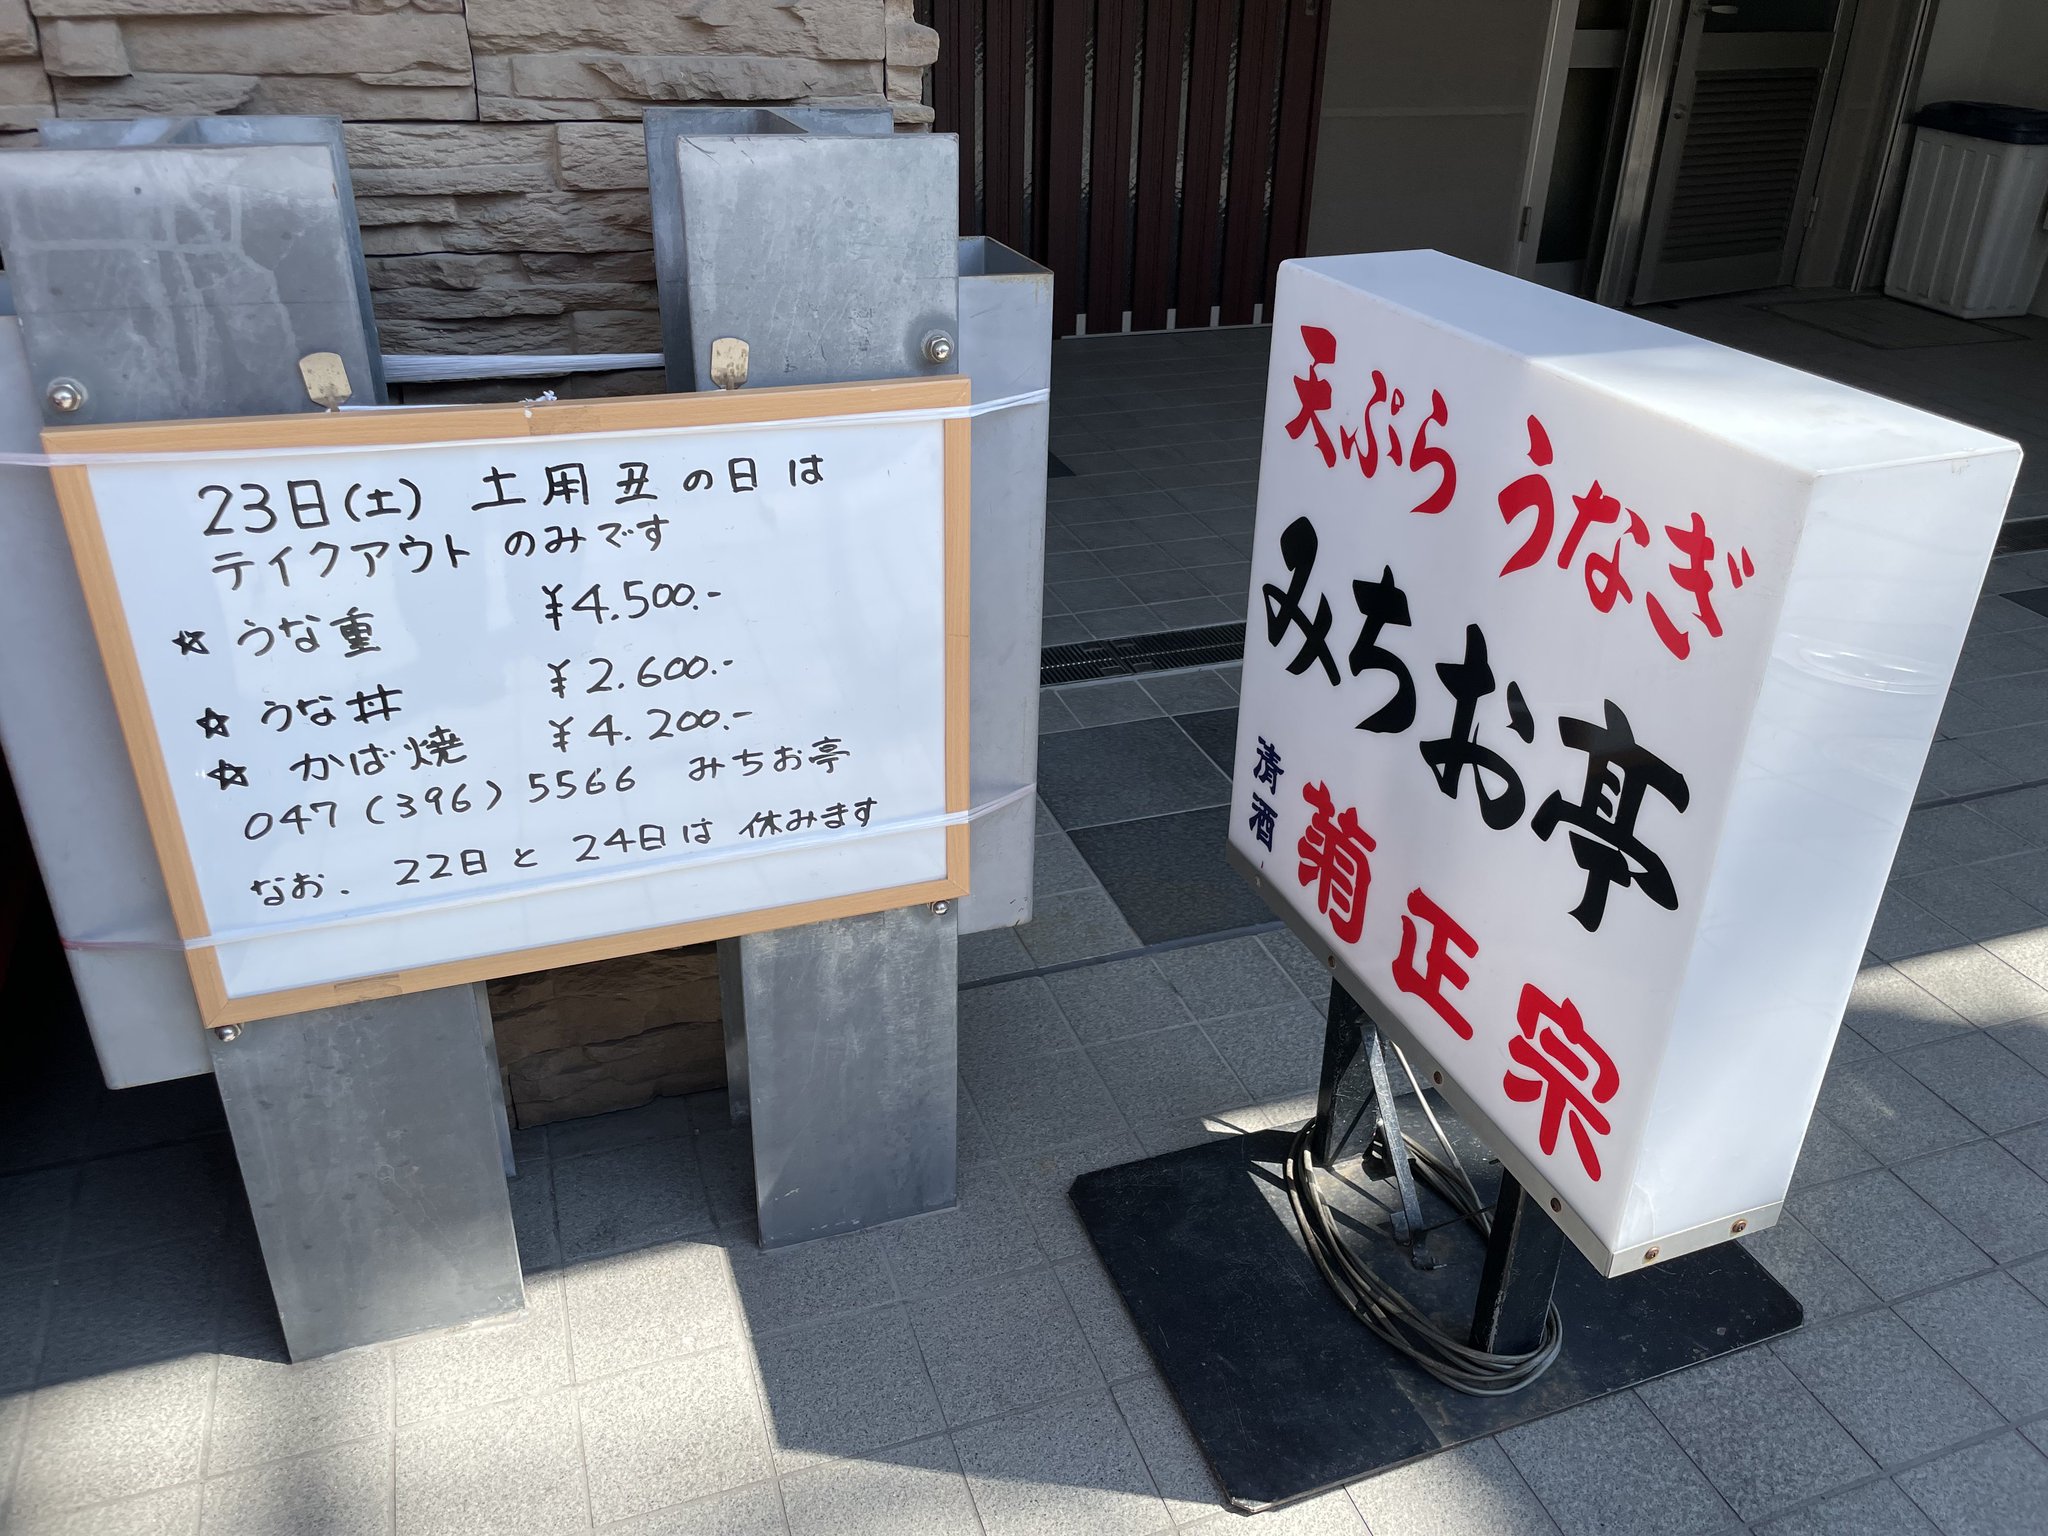 23日(土) 土用丑の日は
テイクアウトのみです
☆ うな重 ¥4.500.-
☆ うな丼 ¥2.600.-
☆ かば焼 ¥4.200.-
047(396)5566 みちお亭
なお、22日と24日は休みます
天ぷら うなぎ
みちお亭
清酒 菊正宗